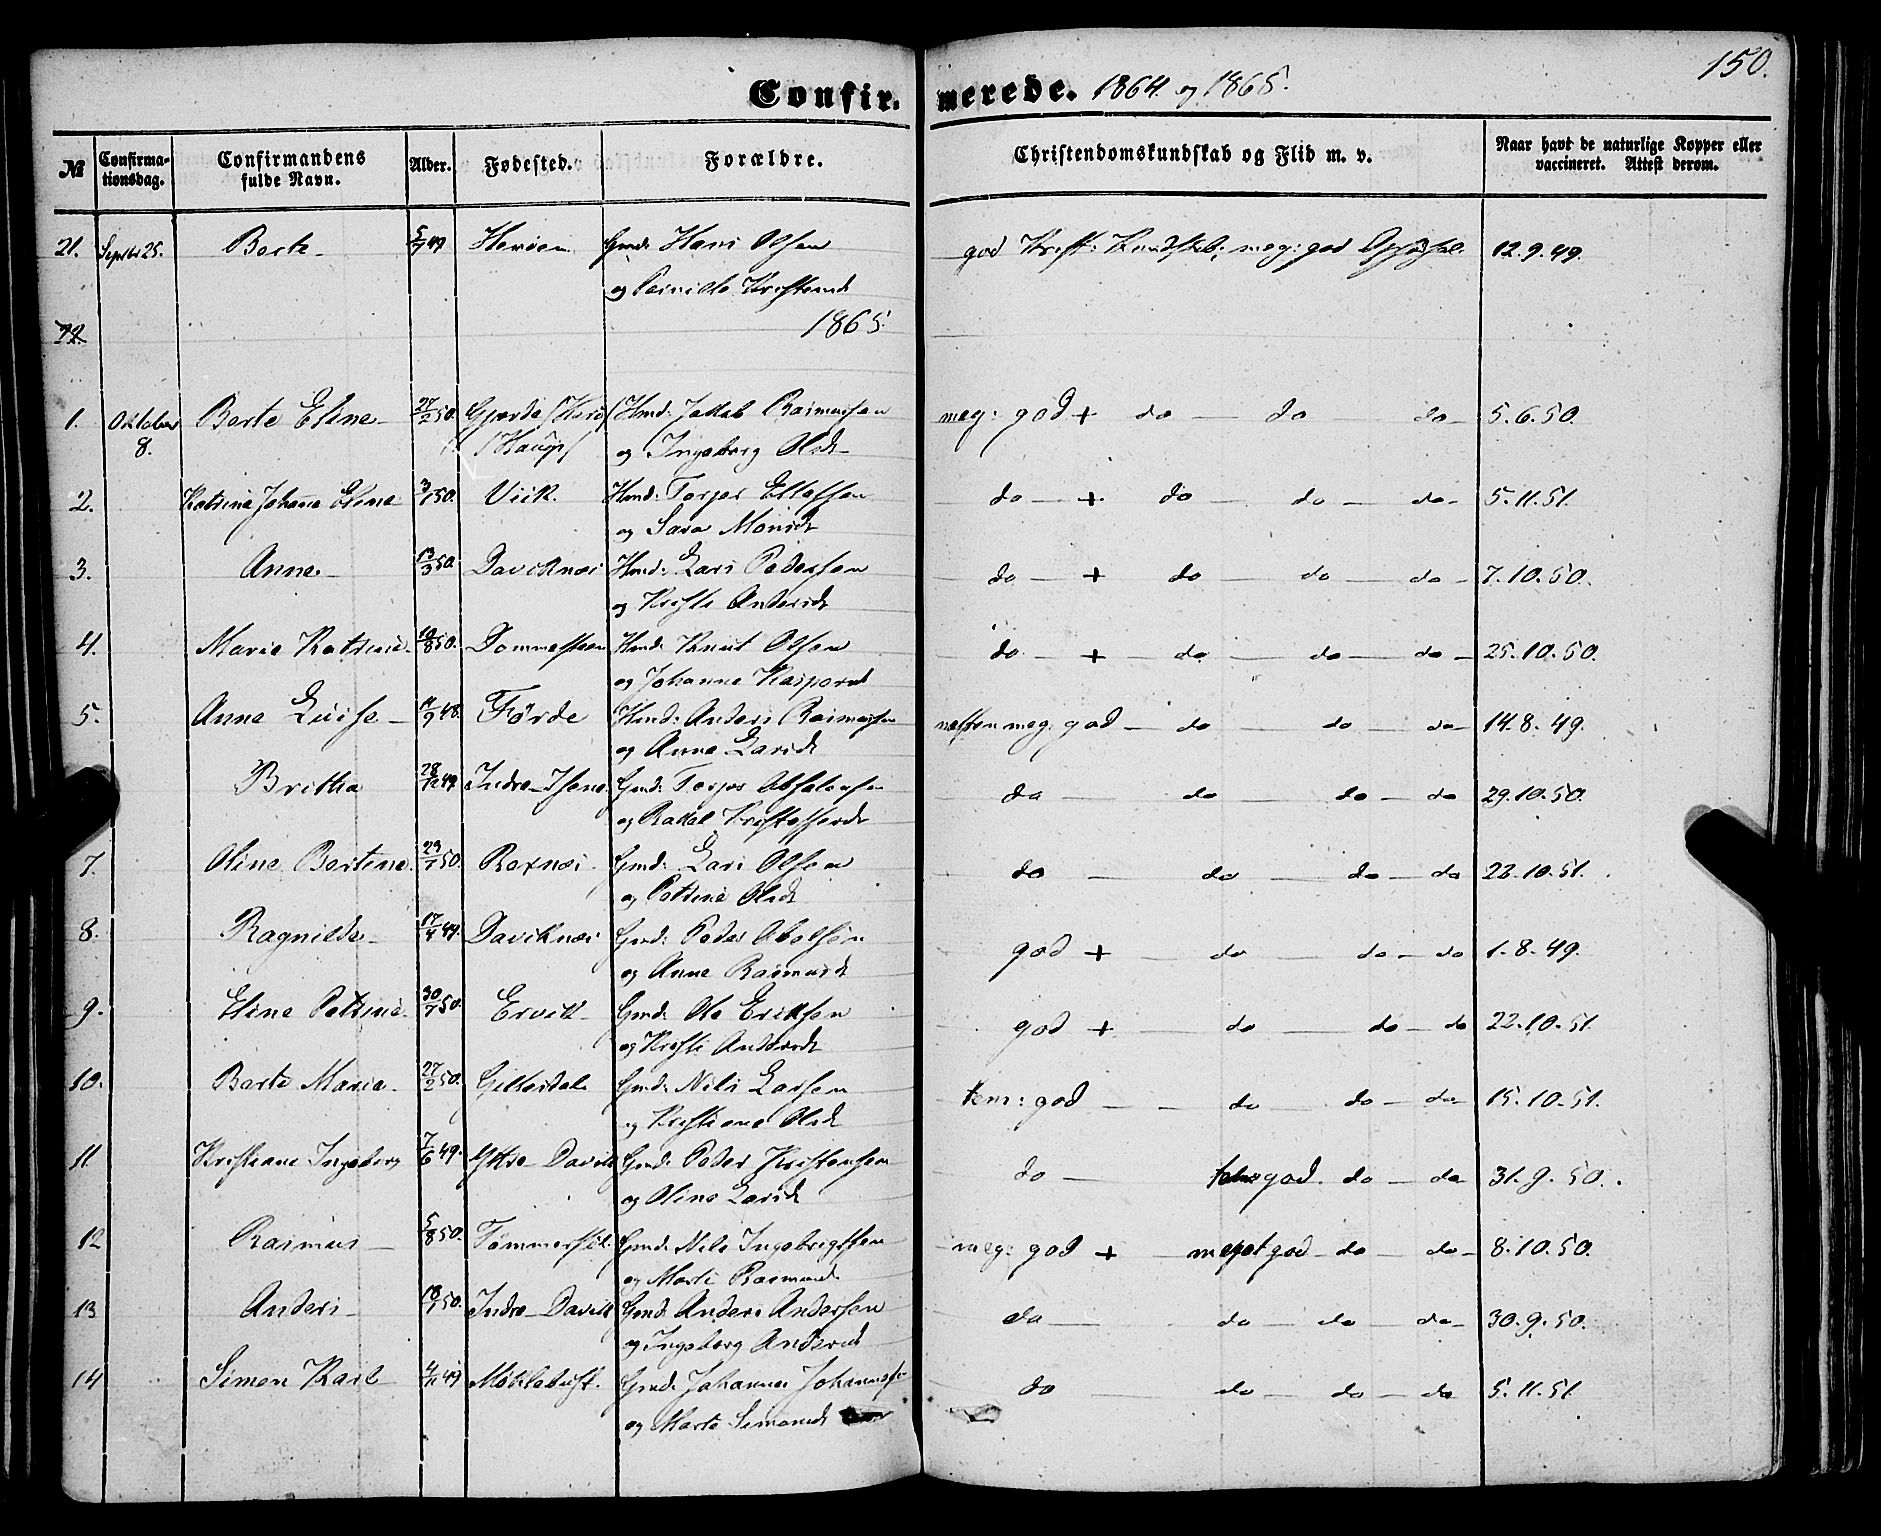 150.
Confirmerede. 1864. og 1865.
№ Confirmationsdag. Confirmandens fulde Navn. Alder. Fødested. Forældre. Christendomskundskab og Flid m. v. Naar havt de naturlige Kopper eller vaccineret. Attest derom.
21. Septbr 25. Berte 49 Gmd: Hans Olsen god Krist: Kundskab; meg: god Opførsel. 12.9.49.
og Pernille Kristensd
22. 1865.
1. Oktober Berte Eline 27/2 50. Gjerde Hmd: Jakob Rasmussen meg: god + do do do 5.6.50.
8. og Ingeborg Olsd
2. Katrine Johanne Eline 3/1 50. Viik. Hmd: Torger Ellefsen do + do do do 5.11.51.
og Sara Monsd
3. Anne 13/3 50. Daviknæs Hmd: Lars Pedersen do + do do do 7.10.50.
og Kristi Andersd
4. Marie Katrine 50. Dommesteen Hmd: Knut Olsen do + do do do 25.10.50.
og Johanne Kaspersd
5. Anne Luise 11/9 48. Førde Hmd: Anders Rasmussen næsten meg: god do do do 14.8.49.
og Anne Larsd
Britha 28/12 49 Indre Gmd: Torger Absalonsen do do do do 29.10.50.
og Rakel Kristoffersd
7. Oline Bertine 50. Rexnæs Gmd: Lars Olsen do do do do 22.10.51.
og Petrine Olsd
8. Ragnilde 17/4 49. Daviknæs Gmd: Peder Abelsen god + do do do 1.8.49.
og Anne Rasmusd
9. Eline Petrine 30/7 50. Ervik Gmd: Ole Eriksen god + do do do 22.10.51.
og Kristi Andersd
10. Berte Maria 27/2 50. Gillesdal Gmd: Nils Larsen tem: god do do do 15.10.51.
og Kristiane Olsd
11 Kristiane Ingeborg 7/6 49. Ytre Davik Gmd: Peder Kristensen do god. do do 31.9.50.
og Oline Larsd
12 Rasmus 5/8 50. Gmd: Nils Ingebrigtsen meg: god + meget god do do 8.10.50.
og Marte Rasmusd
13 Anders 18/1 50. Indre Davik Gmd: Anders Andersen do do do do 30.9.50.
og Ingeborg Andersd
14 Simen Karl 4/11 49 Myklebust. Gmd: Johannes Johannessen do do do do 5.11.51.
og Marte Simensd